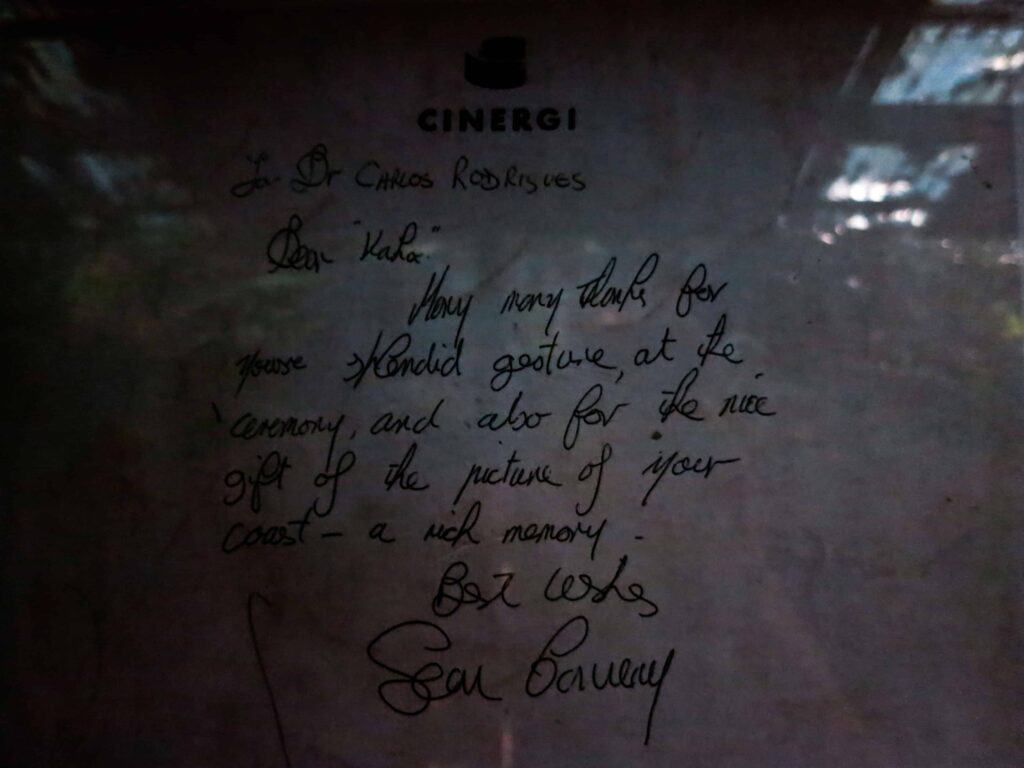 CINERGI
To Dr CARLOS RODRIGUES
Dear "Kaha"
Many many thanks for
youre splendid gesture, at the
ceremony, and also for the nice
gift of the picture of your
coast – a rich memory.
Best Wishes
Sean Connery